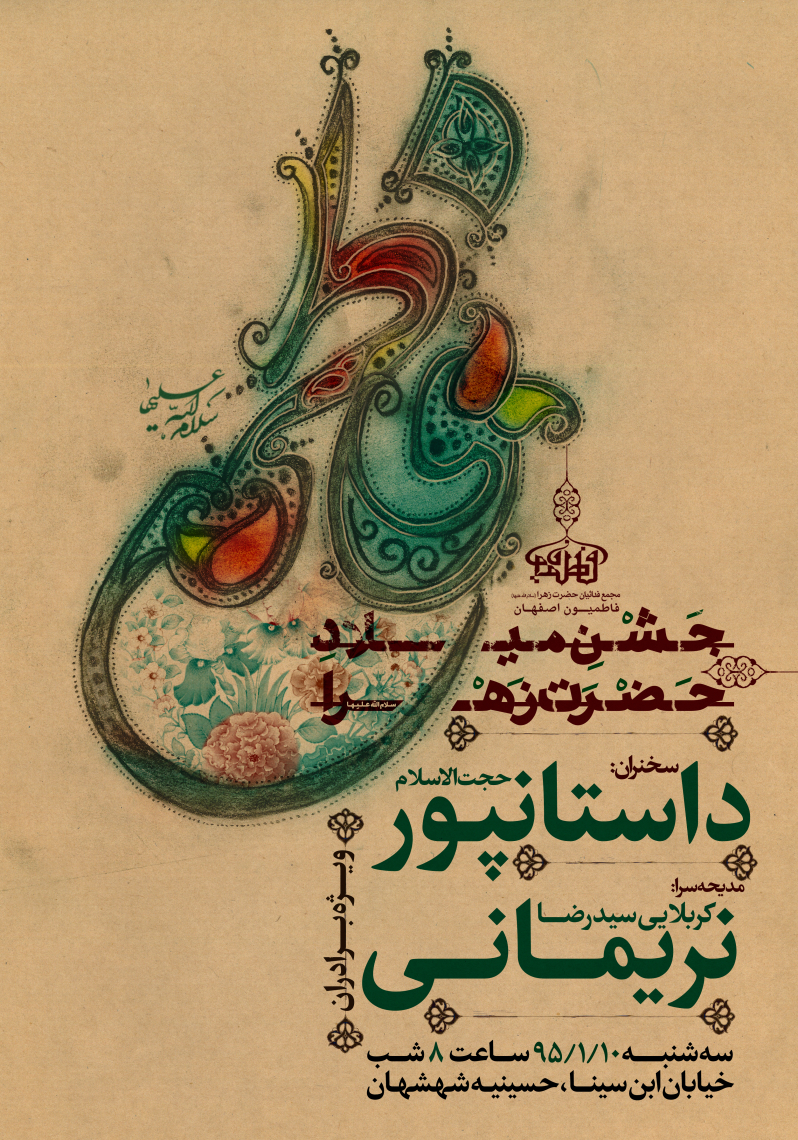 فاطمه
سلام الله علیها
مجمع فدائیان حضرت زهرا (سلام الله علیها)
فاطمیـون اصفهـان
جَشْنِ میـلاد
حَضْرَتِ زَهْـرا
سلام الله علیها
سخنران:
حجت‌الاسلام
داستانپور
مدیحه‌سرا:
کربلایی سیدرضا
نریمانی
ویژه برادران
سه‌شنبه ۹۵/۱/۱۰ ساعت ۸ شب
خیابان ابن سینا، حسینیه شهشهان